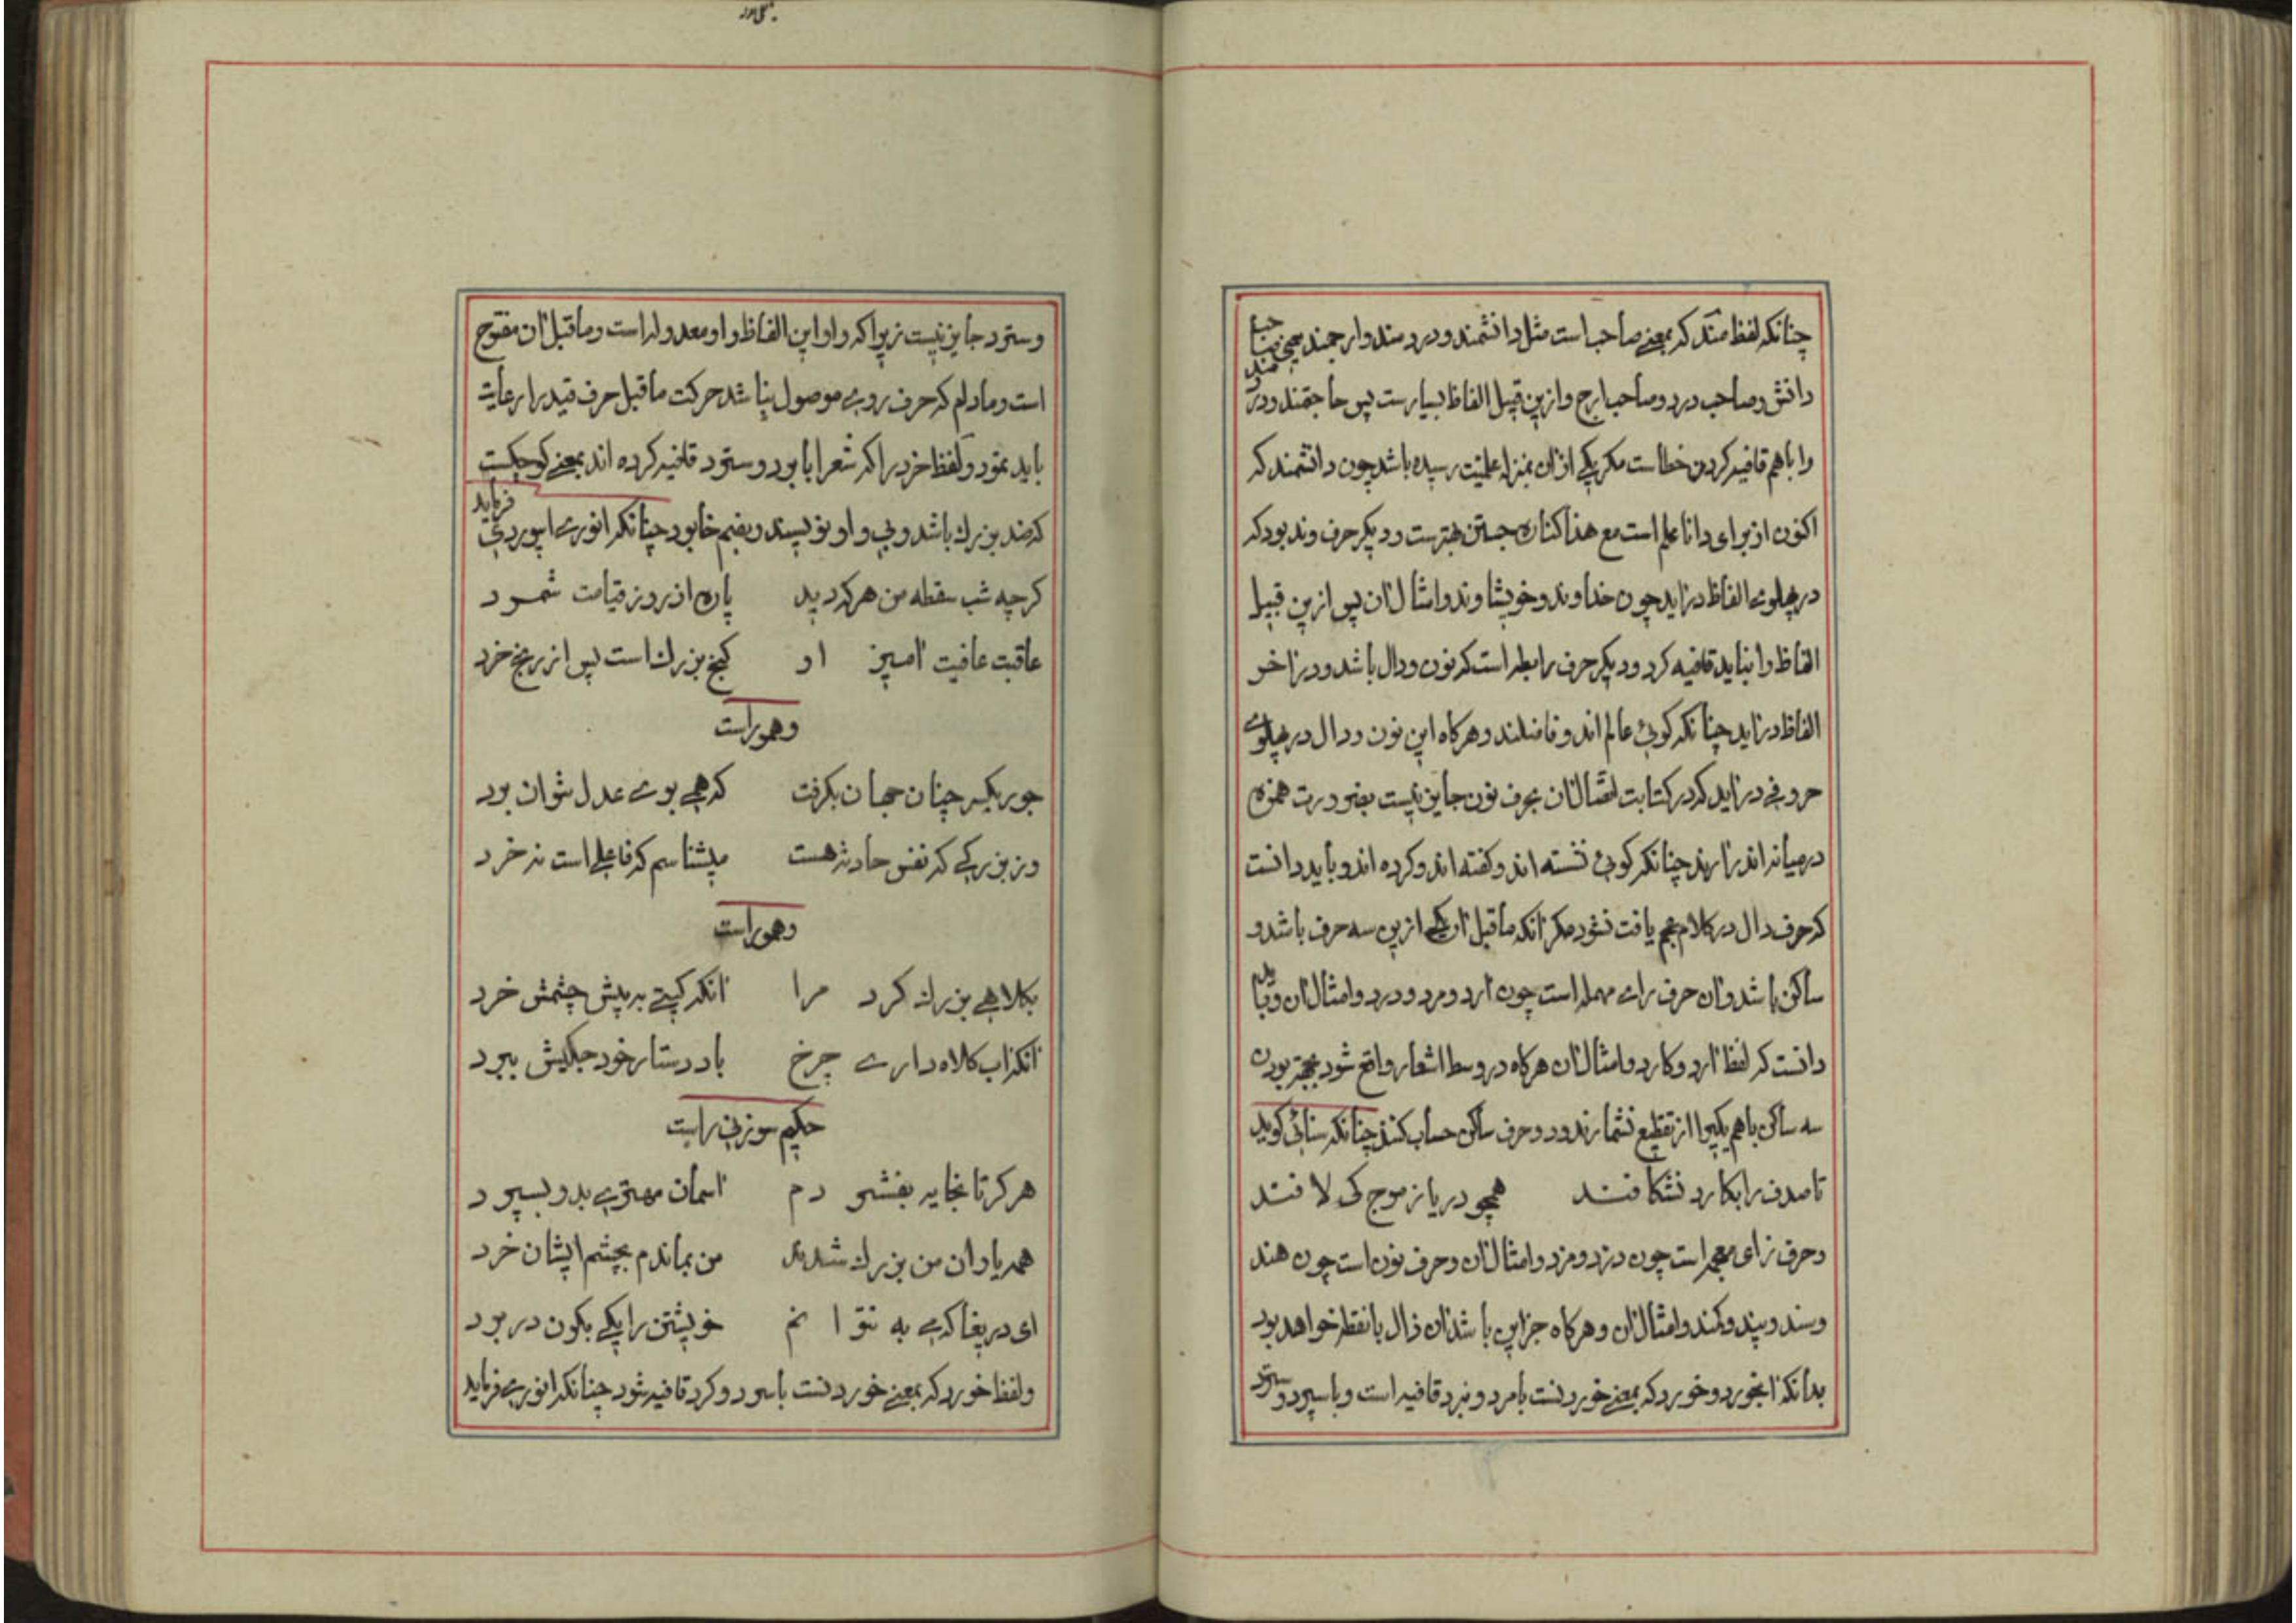 چنانکه لفظ مند که بمعنی صاحب است مثل دانشمند و دردمند و ارجمند یعنی صاحب
دانش و صاحب درد و صاحب ارج و ازین قبیل الفاظ بسیارست پس حاجتمند و دردمند
را باهم قافیه کردن خطاست مکر یکی ازان بمنزله علمیت رسیده باشد چون دانشمند که
اکنون از برای دانا علم است مع هذا کناره جستن بهترست و دیکر حرف وند بود که
در پهلوی الفاظ درآید چون خداوند و خویشاوند و امثال آن پس ازین قبیل
الفاظ را نباید قافیه کرد و دیکر حرف رابطه است که نون و دال باشد و در آخر
الفاظ درآید چنانکه کوئی عالم اند و فاضلند و هرکاه این نون و دال در پهلوی
حروفی درآید که در کتابت اتصال آن بحرف نون جایز نیست بضرورت همزه
در میانه اندر آرند چنانکه کوئی نشسته اند و کفته اند و کرده اند و باید دانست
که حرف دال در کلام عجم یافت نشود مکر آنکه ماقبل آن یکی ازین سه حرف باشد و
ساکن باشد و آن حرف رای مهمله است چون آرد و مرد و درد و امثال آن و باید
دانست که لفظ آرد و کارد و امثال آن هرکاه در وسط اشعار واقع شود بجهة بودن
سه ساکن باهم یکیرا از تقطیع نشمارند و دو حرف ساکن حساب کنند چنانکه سنائی کوید
تا صدف را بکارد نشکافند همچو دریا ز موج کی لافند
و حرف زای معجمه است چون دزد و مزد و امثال آن و حرف نون است چون هند
و سند و پند و کند و امثال آن و هرکاه جز این باشد آن ذال با نقطه خواهد بود
بدانکه آبخورد و خورد که بمعنی خوردنست بامرد و نبرد قافیه است و با سپرد و سترد
وسترد جایز نیست زیرا که واو این الفاظ واو معدوله است و ماقبل آن مفتوح
است و مادام که حرف روی موصول نباشد حرکت ماقبل حرف قید را رعایت
باید نمود و لفظ خرد را که شعرا با برد و سترد قافیه کرده اند بمعنی کوچکست
که ضد بزرك باشد و بی واو نویسند و بضم خا بود چنانکه انوری ابیوردی فرماید
کرچه شب سقطه من هرکه دید پاره از روز قیامت شمرد
عاقبت عافیت آمیز او کنج بزرك است پس از رنج خرد
وهوراست
جور یکسر چنان جهان بکرفت که همی بوی عدل نتوان برد
وز بزرکی که نفس حادثه هست میشناسم که فاعلی است نه خرد
وهوراست
بکلاهی بزرك کرد مرا آنکه کیتی به پیش چشمش خرد
آنکه آب کلاه داری چرخ باد دستار خود جکلیش ببرد
حکیم سوزنی راست
هرکرتا بخایه بفشرد دم آسمان مهتری بدو بسپرد
همه یاران من بزرك شدند من بماندم بچشم ایشان خرد
ای دریغا کمی به نتوانم خویشتن را یکی بکون در برد
و لفظ خورد که بمعنی خوردنست با سرد و کرد قافیه شود چنانکه انوری فرماید